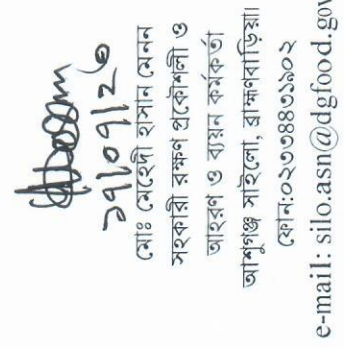 ১৭/০৭/২৫
মোঃ মেহেদী হাসান মেনন
সহকারী রক্ষণ প্রকৌশলী ও
আহরণ ও ব্যয়ন কর্মকর্তা
আশুগঞ্জ সাইলো, ব্রাহ্মণবাড়িয়া।
ফোন:০২৩৩৪৪৩১৯০২
e-mail: silo.asn@dgfood.gov